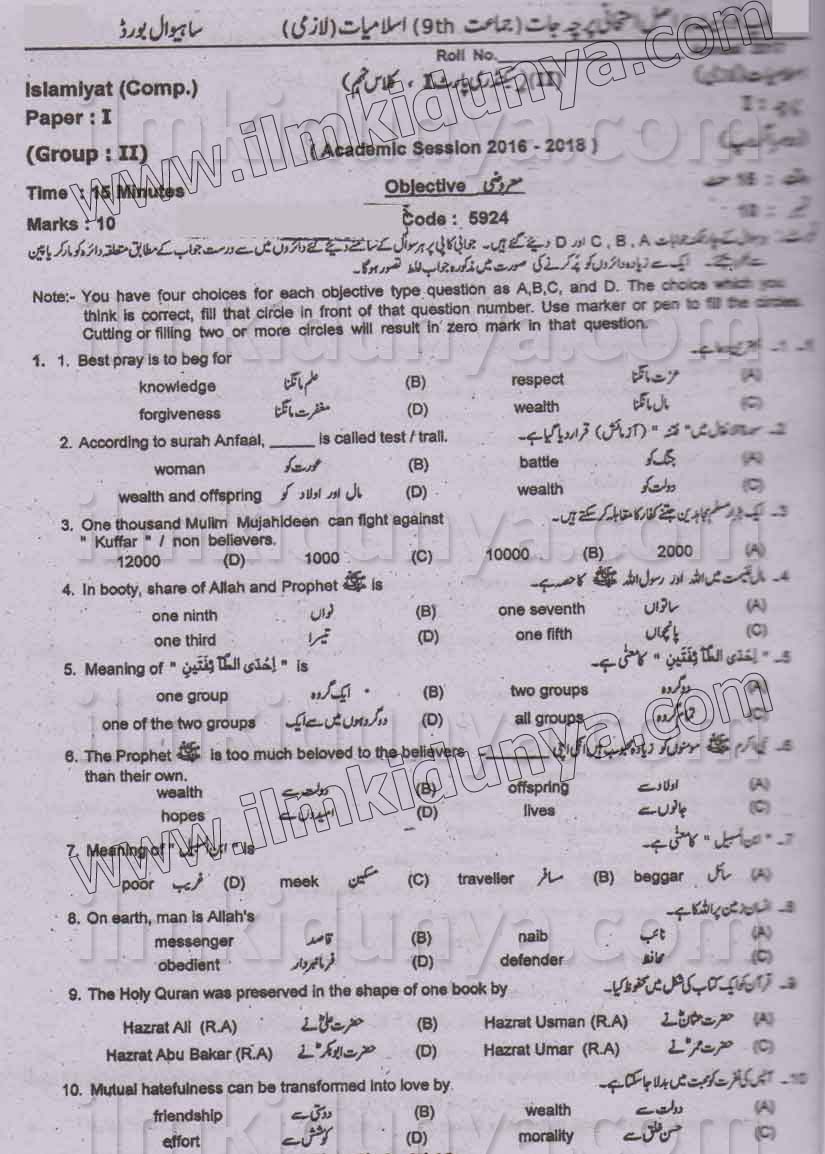 اصل امتحانی پرچہ جات (جماعت 9th) اسلامیات (لازمی) ساہیوال بورڈ
Roll No.
Islamiyat (Comp.) (II) (سیکنڈری پارٹ I ، کلاس نہم)
Paper : I پرچہ : I
(Group : II) ( Academic Session 2016 - 2018 )
Time : 15 Minutes Objective معروضی وقت : 15 منٹ
Marks : 10 Code : 5924
ہر سوال کے چار ممکنہ جوابات A ، B ، C اور D دیئے گئے ہیں۔ جوابی کاپی پر ہر سوال کے سامنے دیئے گئے دائروں میں سے درست جواب کے مطابق متعلقہ دائرہ کو مارکر یا پین
سے بھر دیجئے۔ ایک سے زیادہ دائروں کو پُر کرنے کی صورت میں مذکورہ جواب غلط تصور ہوگا۔
Note:- You have four choices for each objective type question as A,B,C, and D. The choice which you
think is correct, fill that circle in front of that question number. Use marker or pen to fill the circles.
Cutting or filling two or more circles will result in zero mark in that question.
1. 1. Best pray is to beg for 1۔ 1۔ بہترین دعا ہے۔
knowledge علم مانگنا (B) respect عزت مانگنا (A)
forgiveness مغفرت مانگنا (D) wealth مال مانگنا (C)
2. According to surah Anfaal, _____ is called test / trail. 2۔ سورۃ الانفال میں " فتنہ " (آزمائش) قرار دیا گیا ہے۔
woman عورت کو (B) battle جنگ کو (A)
wealth and offspring مال اور اولاد کو (D) wealth دولت کو (C)
3. One thousand Mulim Mujahideen can fight against 3۔ ایک ہزار مسلم مجاہدین جتنے کفار کا مقابلہ کر سکتے ہیں۔
" Kuffar " / non believers.
12000 (D) 1000 (C) 10000 (B) 2000 (A)
4. In booty, share of Allah and Prophet ﷺ is 4۔ مال غنیمت میں اللہ اور رسول اللہ ﷺ کا حصہ ہے۔
one ninth نواں (B) one seventh ساتواں (A)
one third تیسرا (D) one fifth پانچواں (C)
5. Meaning of " اِحْدَی الطَّآئِفَتَیْنِ " is 5۔ " اِحْدَی الطَّآئِفَتَیْنِ " کا معنٰی ہے۔
one group ایک گروہ (B) two groups دو گروہ (A)
one of the two groups دو گروہوں میں سے ایک (D) all groups تمام گروہ (C)
6. The Prophet ﷺ is too much beloved to the believers _____ 6۔ نبی اکرم ﷺ مومنوں کو زیادہ محبوب ہیں انکی اپنی
than their own.
wealth دولت سے (B) offspring اولاد سے (A)
hopes امیدوں سے (D) lives جانوں سے (C)
7. Meaning of " ابن السبیل " is 7۔ " ابن السبیل " کا معنٰی ہے۔
poor غریب (D) meek مسکین (C) traveller مسافر (B) beggar سائل (A)
8. On earth, man is Allah's 8۔ انسان زمین پر اللہ کا ہے۔
messenger قاصد (B) naib نائب (A)
obedient فرمانبردار (D) defender محافظ (C)
9. The Holy Quran was preserved in the shape of one book by 9۔ قرآن کو ایک کتاب کی شکل میں محفوظ کیا۔
Hazrat Ali (R.A) حضرت علیؓ نے (B) Hazrat Usman (R.A) حضرت عثمانؓ نے (A)
Hazrat Abu Bakar (R.A) حضرت ابوبکرؓ نے (D) Hazrat Umar (R.A) حضرت عمرؓ نے (C)
10. Mutual hatefulness can be transformed into love by 10۔ آپس کی نفرت کو محبت میں بدلا جا سکتا ہے۔
friendship دوستی سے (B) wealth دولت سے (A)
effort کوشش سے (D) morality حسن خلق سے (C)
www.ilmkidunya.com
www.ilmkidunya.com